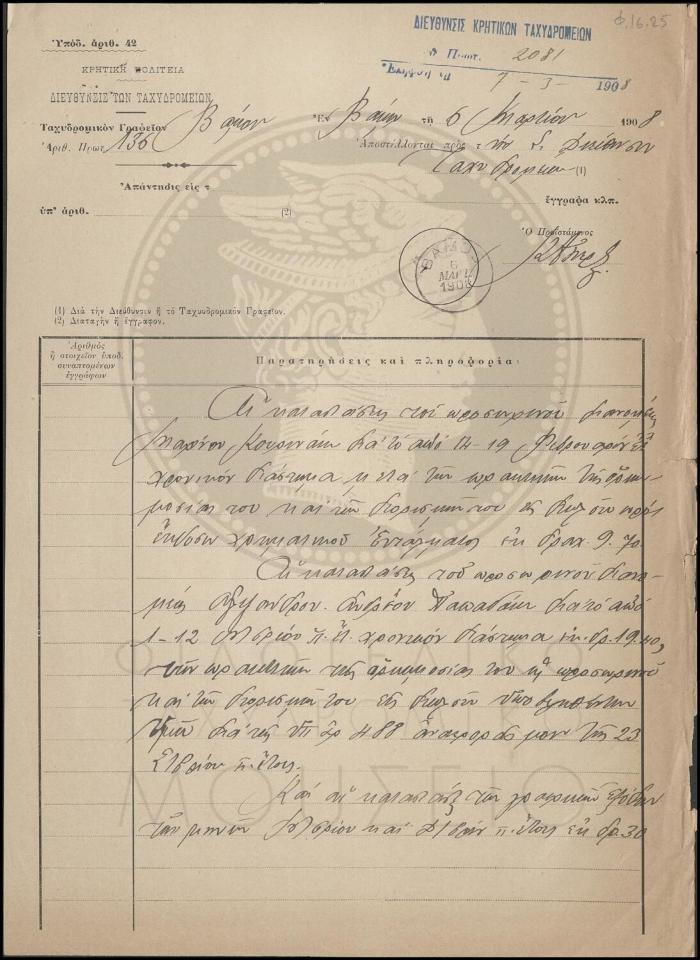 Ὑπόδ. ἀριθ. 42
ΚΡΗΤΙΚΗ ΠΟΛΙΤΕΙΑ
ΔΙΕΥΘΥΝΣΙΣ ΤΩΝ ΤΑΧΥΔΡΟΜΕΙΩΝ
ΔΙΕΥΘΥΝΣΙΣ ΚΡΗΤΙΚΩΝ ΤΑΧΥΔΡΟΜΕΙΩΝ
Φ.16.25
Πρωτ. 2081
Ἐλήφθη τῇ 7-3-1908
Ταχυδρομικὸν Γραφεῖον Βάμου
Ἐν Βάμῳ τῇ 6 Μαρτίου 1908
Ἀριθ. Πρωτ. 136
Ἀποστέλλονται πρὸς τὴν Δ. Διεύθυνσιν
Ταχυδρομείων (1)
Ἀπάντησις εἰς τ
ὑπ' ἀριθ. (2)
ἔγγραφα κλπ.
Ὁ Προϊστάμενος
ΒΑΜΟΣ
6
ΜΑΡΤ
1908
(1) Διὰ τὴν Διεύθυνσιν ἢ τὸ Ταχυδρομικὸν Γραφεῖον.
(2) Διαταγὴν ἢ ἔγγραφον.
Ἀριθμὸς
ἢ στοιχεῖον ὑποδ.
συναπτομένων
ἐγγράφων
Παρατηρήσεις καὶ πληροφορίαι
Αἱ καταστάσεις τοῦ προσωρινοῦ διανομέως
διὰ τὸ ἀπὸ 14-19 Φεβρουαρίου
χρονικὸν διάστημα μετὰ τῶν πρακτικῶν τῆς ὁρκω-
μοσίας του καὶ τῶν διορισμῶν του εἰς διπλοῦν πρὸς
ἔκδοσιν χρηματικοῦ ἐντάλματος ἐκ δραχ. 9.70
Αἱ καταστάσεις τοῦ προσωρινοῦ διανο-
μέως Παπαδάκη διὰ τὸ ἀπὸ
1-12 π. ἔ. χρονικὸν διάστημα ἐκ δρ. 19.40,
τῶν πρακτικῶν τῆς ὁρκωμοσίας του
καὶ τῶν διορισμῶν του εἰς διπλοῦν ὑποβληθέντων
ὑμῖν διὰ τῆς ὑπ' ἀρ 488 ἀναφορᾶς μου τῆς 23
π. ἔτους.
Καὶ αἱ καταστάσεις τῶν γραφικῶν ἐξόδων
τῶν μηνῶν καὶ π. ἔτους ἐκ δρ. 30
ΦΙΛΟΤΕΛΙΚΟ
ΤΑΧΥΔΡΟΜΙΚΟ
ΜΟΥΣΕΙΟ